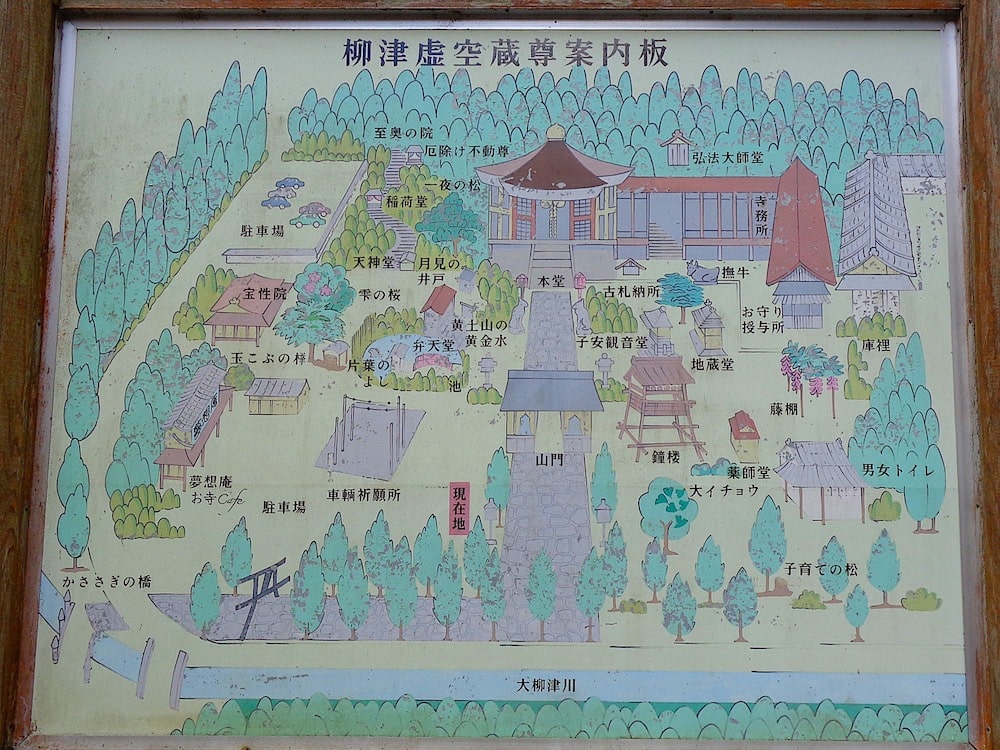 柳津虚空蔵尊案内板
至奥の院
厄除け不動尊
弘法大師堂
一夜の松
稲荷堂
寺務所
駐車場
天神堂
月見の
井戸
本堂
撫牛
宝性院
雫の桜
古札納所
お守り
授与所
黄土山の
黄金水
子安観音堂
弁天堂
庫裡
玉こぶの欅
片葉の
よし
池
地蔵堂
藤棚
山門
鐘楼
薬師堂
男女トイレ
夢想庵
お寺Cafe
駐車場
車輌祈願所
現在地
大イチョウ
かささぎの橋
子育ての松
大柳津川